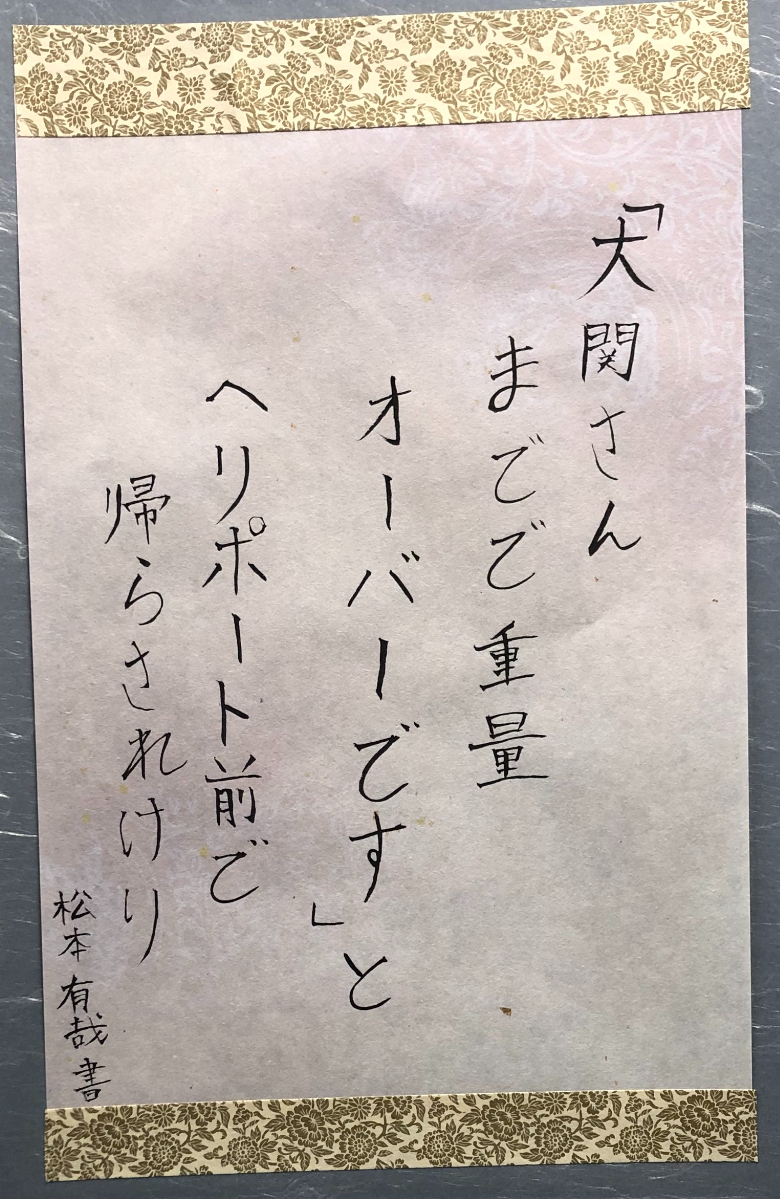 「大関さん
までで重量
オーバーです」と
ヘリポート前で
帰らされけり
松本有哉書